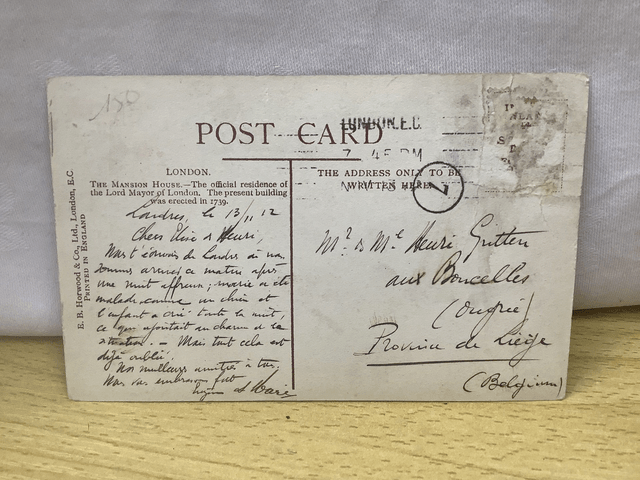 150
POST CARD
LONDON. E.C.
7 45 PM
LONDON.
THE MANSION HOUSE.—The official residence of
the Lord Mayor of London. The present building
was erected in 1739.
THE ADDRESS ONLY TO BE
WRITTEN HERE.
7
E. B. Horwood & Co., Ltd., London, E.C.
PRINTED IN ENGLAND
Londres, le 13/11 12
Chers Elise & Henri,
de Londres où nous
sommes arrivés ce matin après
une nuit affreuse; Marie a été
malade comme un chien et
l'enfant a crié toute la nuit,
ce qui ajoutait au charme de la
situation. — Mais tout cela est
déjà oublié.
Nos meilleures amitiés à tous.
Nous vous embrassons fort
& Marie
Mr & Me Henri
aux Boncelles
(Ougrée)
Province de Liège
(Belgium)